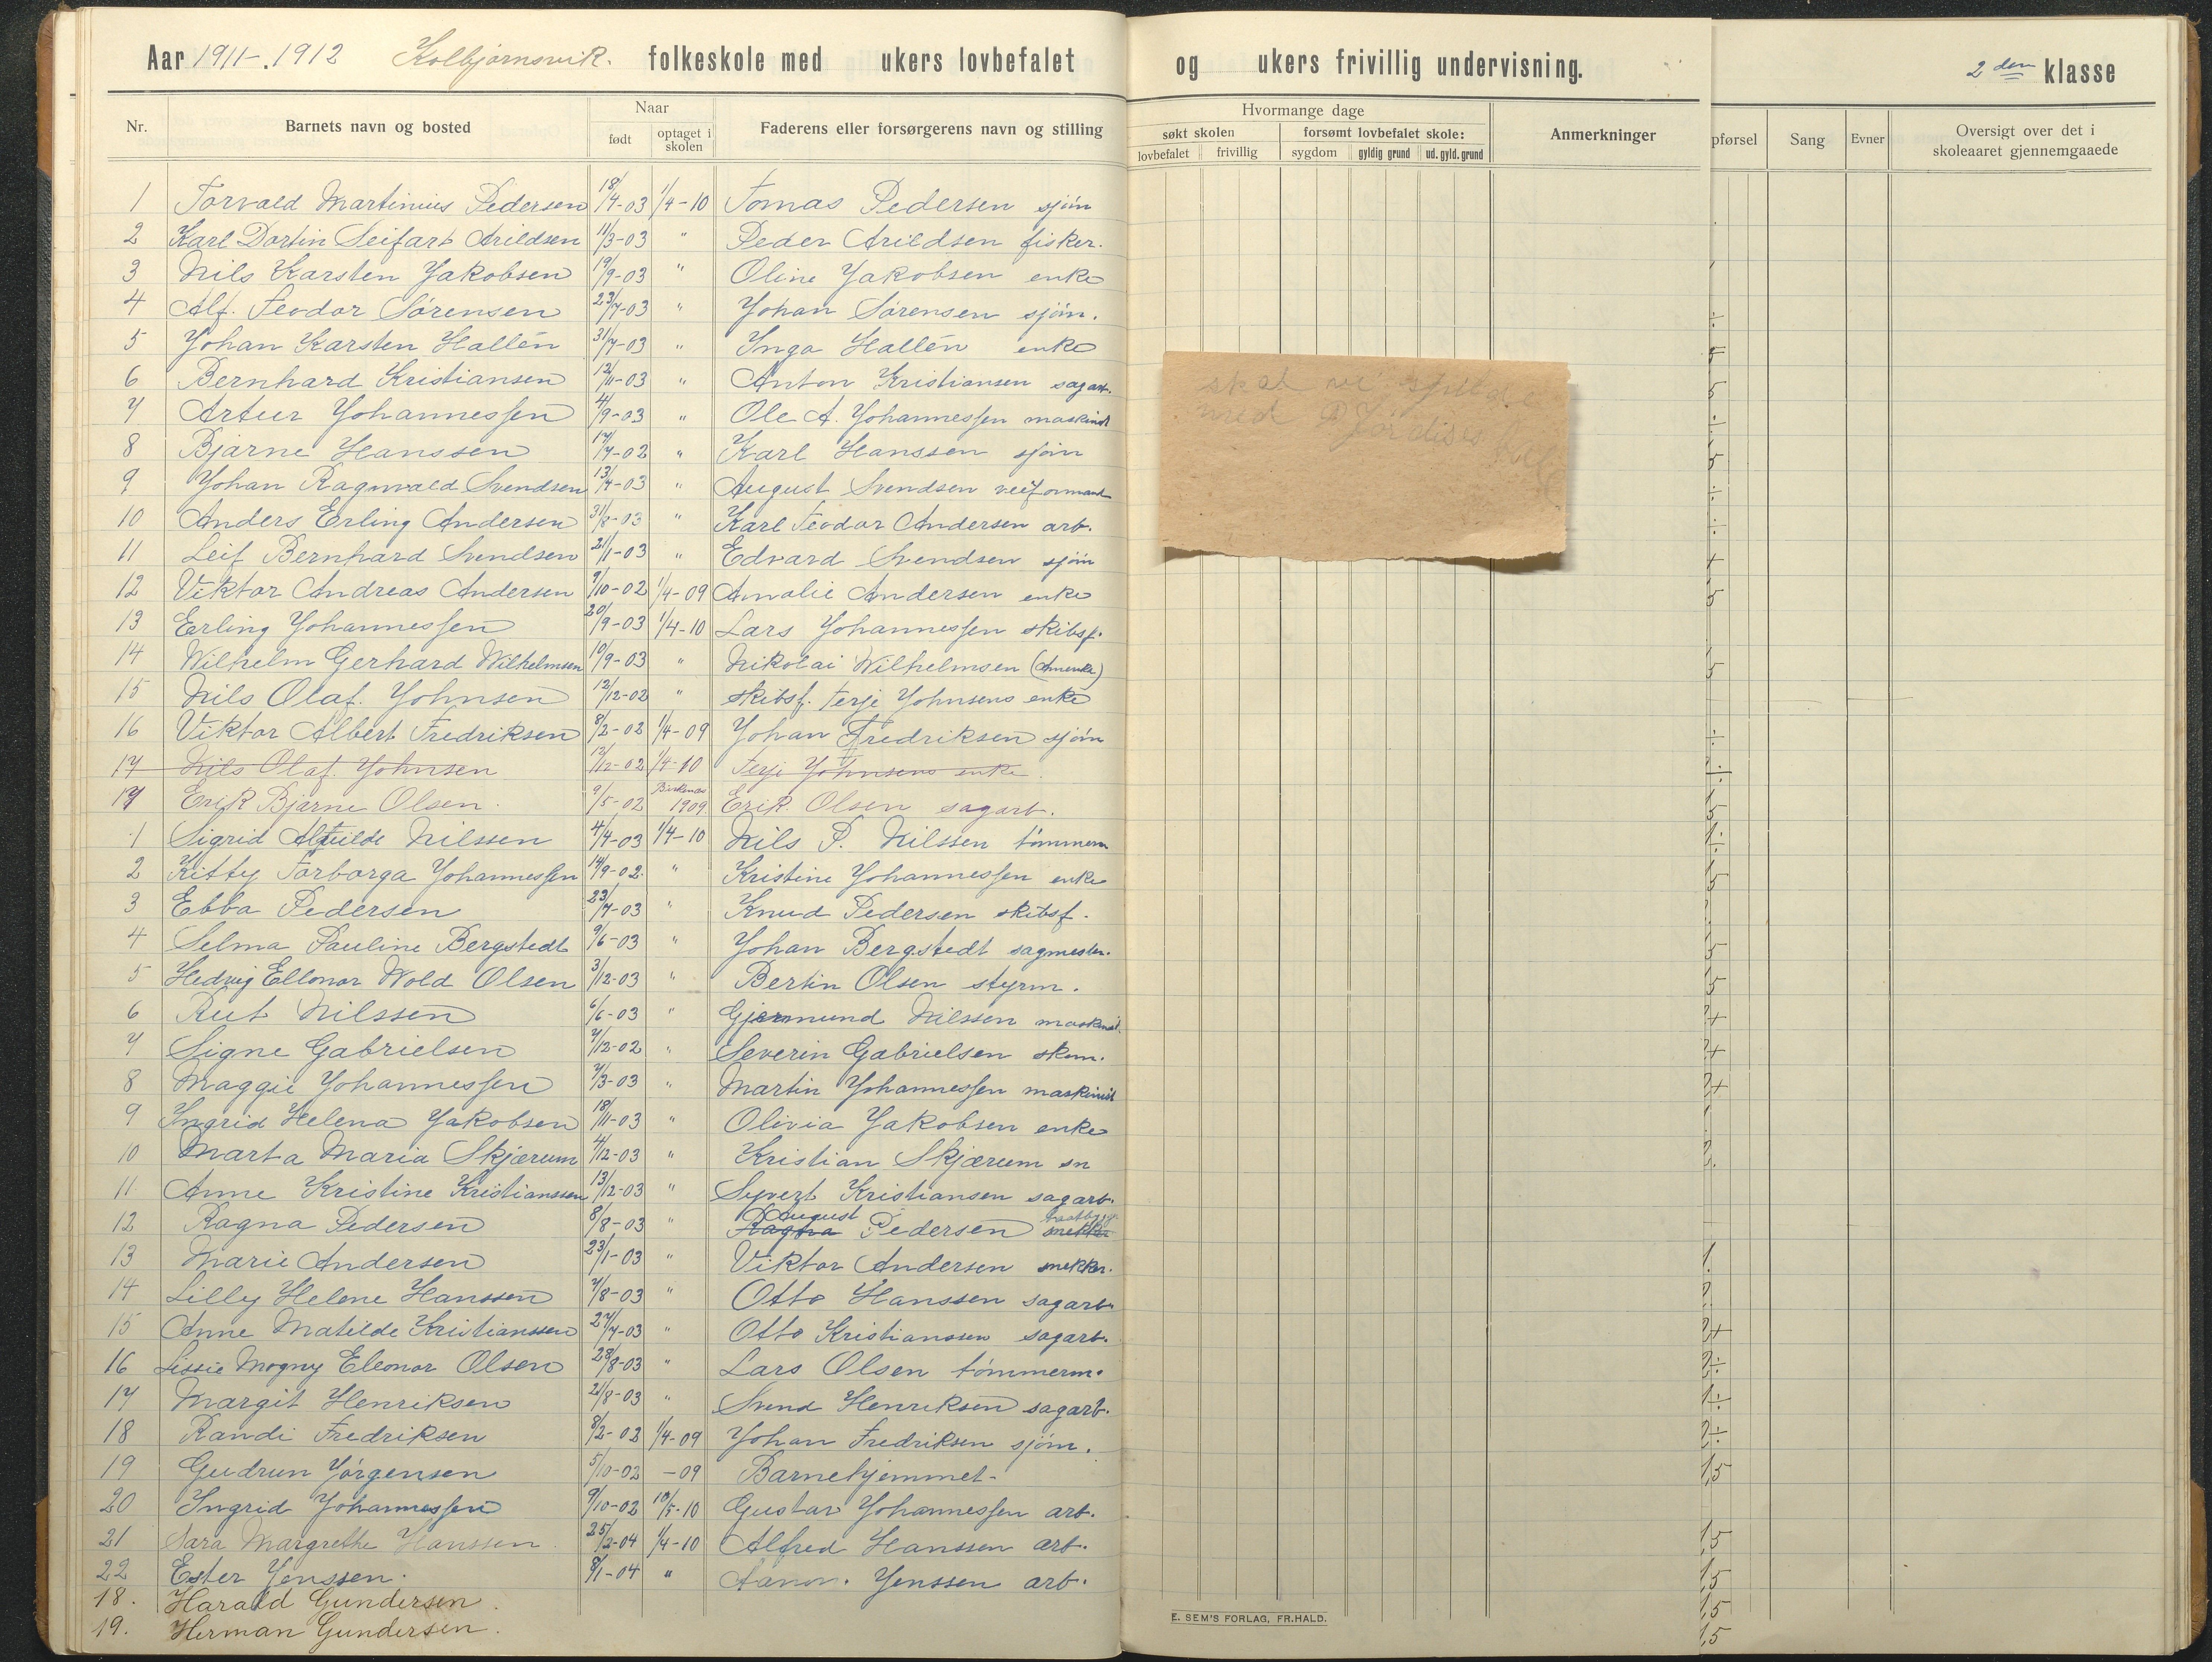 Aar 1911-1912 Kolbjørnsvik. folkeskole med ukers lovbefalet og ukers frivillig undervisning. 2den klasse
Nr. Barnets navn og bosted Naar født optaget i skolen Faderens eller forsørgerens navn og stilling
Hvormange dage Anmerkninger
søkt skolen forsømt lovbefalet skole:
lovbefalet frivillig sygdom gyldig grund ud. gyld. grund
pførsel Sang Evner Oversigt over det i skoleaaret gjennemgaaede
1 Torvald Martinius Pedersen 18/4-03 1/4-10 Tomas Pedersen sjøm
2 Karl Dortin Seifart Arildsen 11/3-03 " Peder Arildsen fisker.
3 Nils Karsten Jakobsen 19/9-03 " Oline Jakobsen enke
4 Alf. Teodor Sørensen 23/7-03 " Johan Sørensen sjøm.
5 Johan Karsten Hallén 31/7-03 " Inga Hallén enke
6 Bernhard Kristiansen 12/11-03 " Anton Kristiansen sagarb.
7 Artur Johannessen 4/9-03 " Ole A. Johannessen maskinist
8 Bjarne Hanssen 17/7-02 " Karl Hanssen sjøm
9 Johan Ragnvald Svendsen 13/4-03 " August Svendsen veiformand
10 Anders Erling Andersen 31/8-03 " Karl Teodor Andersen arb.
11 Leif Bernhard Svendsen 21/1-03 " Edvard Svendsen sjøm
12 Viktor Andreas Andersen 9/10-02 1/4-09 Amalie Andersen enke
13 Erling Johannessen 20/9-03 1/4-10 Lars Johannessen skibsf.
14 Wilhelm Gerhard Wilhelmsen 10/9-03 " Nikolai Wilhelmsen (Amerika)
15 Nils Olaf. Johnsen 12/12-02 " skibsf. Terje Johnsens enke
16 Viktor Albert Fredriksen 8/2-02 1/4-09 Johan Fredriksen sjøm
17 Nils Olaf. Johnsen 12/12-02 1/4-10 Terje Johnsens enke.
17 Erik Bjarne Olsen. 9/5-02 Birkenes 1909 Erik Olsen sagarb.
1 Sigrid Alfhilde Nilssen 4/4-03 1/4-10 Nils P. Nilssen tømmerm
2 Kitty Torborga Johannessen 14/9-02. " Kristine Johannessen enke
3 Ebba Pedersen 23/7-03 " Knud Pedersen skibsf.
4 Selma Pauline Bergstedt 9/6-03 " Johan Bergstedt sagmester.
5 Hedvig Ellonor Wold Olsen 3/12-03 " Bertin Olsen styrm.
6 Rut Nilssen 6/6-03 " Gjermund Nilssen maskinist.
7 Signe Gabrielsen 7/12-02 " Severin Gabrielsen skom.
8 Maggie Johannessen 7/3-03 " Martin Johannessen maskinist
9 Ingrid Helena Jakobsen 18/11-03 " Olivia Jakobsen enke
10 Marta Maria Skjærum 4/12-03 " Kristian Skjærum sn
11 Anne Kristine Kristianssen 13/12-03 " Syvert Kristiansen sagarb.
12 Ragna Pedersen 8/8-03 " Ragna August Pedersen
13 Marie Andersen 23/1-03 " Viktor Andersen snekker.
14 Lilly Helene Hanssen 7/8-03 " Otto Hanssen sagarb.
15 Anne Matilde Kristianssen 27/7-03 " Otto Kristianssen sagarb.
16 Lissie Mogny Eleonor Olsen 28/8-03 " Lars Olsen tømmerm.
17 Margit Henriksen 21/8-03 " Svend Henriksen sagarb.
18 Randi Fredriksen 8/2-02 1/4-09 Johan Fredriksen sjøm.
19 Gudrun Jørgensen 5/10-02 -09 Barnehjemmet.
20 Ingrid Johannessen 9/10-02 10/5-10 Gustav Johannessen arb.
21 Sara Margrethe Hanssen 25/2-04 1/4-10 Alfred Hanssen arb.
22 Ester Jenssen. 8/1-04 " Jenssen arb.
18. Harald Gundersen.
19. Herman Gundersen.
skal vi
med
E. SEM'S FORLAG, FR.HALD.